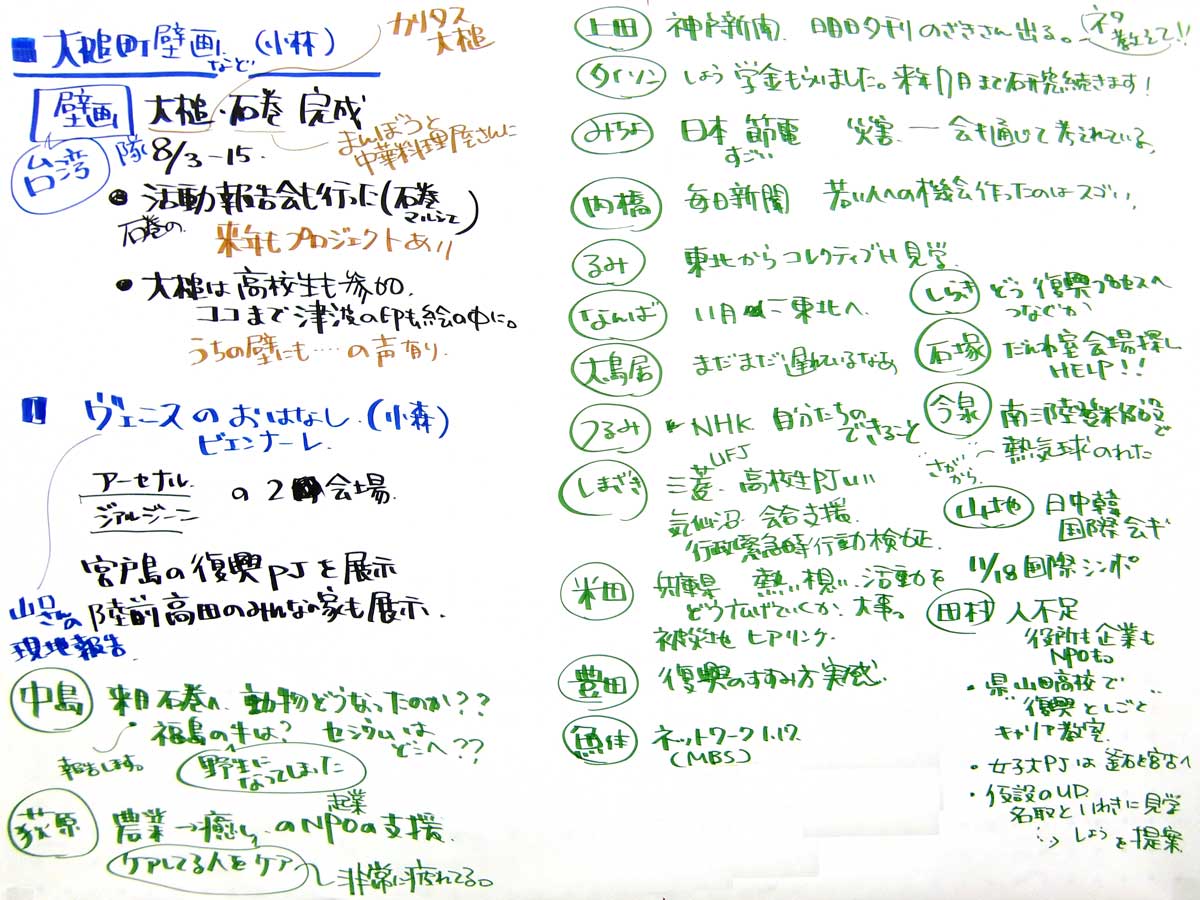 ■ 大槌町壁画など (小林)
カリタス大槌
壁画 大槌・石巻 完成
まんぼうと
中華料理屋さんに
台湾隊 8/3-15.
• 活動報告会も行った(石巻マルシェ)
石巻の 来年もプロジェクトあり
• 大槌は高校生も参加.
ココまで津波の印も絵の中に。
うちの壁にも…の声有り.
■ ヴェニスのおはなし.(小森)
ビエンナーレ.
アーセナル.
ジアルジーニ
の2 会場.
宮戸島の復興PJを展示
陸前高田のみんなの家も展示.
山口さんの
現地報告
中島 来月石巻へ 動物どうなったのか??
• 福島の牛は? セシウムはどこへ??
報告します。 野生になってしまった
荻原 農業→癒しのNPOの起業支援.
ケアしてる人をケア 〜非常に疲れてる。
上田 神戸新聞 明日夕刊のざきさん出る。 ネタ教えて!!
タイソン しょう学金もらいました。来年7月まで研究続きます!
みちよ 日本 節電すごい 災害 ー 会を通じて考えれている。
内橋 毎日新聞 若い人への機会作ったのはスゴい。
るみ 東北からコレクティブH見学.
なんば 11月に東北へ.
大鳥居 まだまだ遅れているなあ
つるみ NHK 自分たちのできること
しまざき 三菱UFJ 高校生PJ
気仙沼 会合支援.
行政緊急時行動検証.
米田 兵庫県 熱い想い、活動を
どう広げていくか. 大事。
被災地 ヒアリング.
豊田 復興のすすみ方実感.
魚住 ネットワーク1.17
(MBS)
しらき どう復興プロセスへ
つなぐか
石塚 だんわ室会場探し
HELP!!
今泉 南三陸登米仮設で
さがから 〜熱気球のれた
山地 日中韓
国際会ギ
11/18国際シンポ
田村 人不足
役所も企業も
NPOも。
• 県山田高校で
"復興としごと"
キャリア教室.
• 女子大PJは釜石と宮古へ
• 仮設のUD
名取といわきに見学
しょうを提案